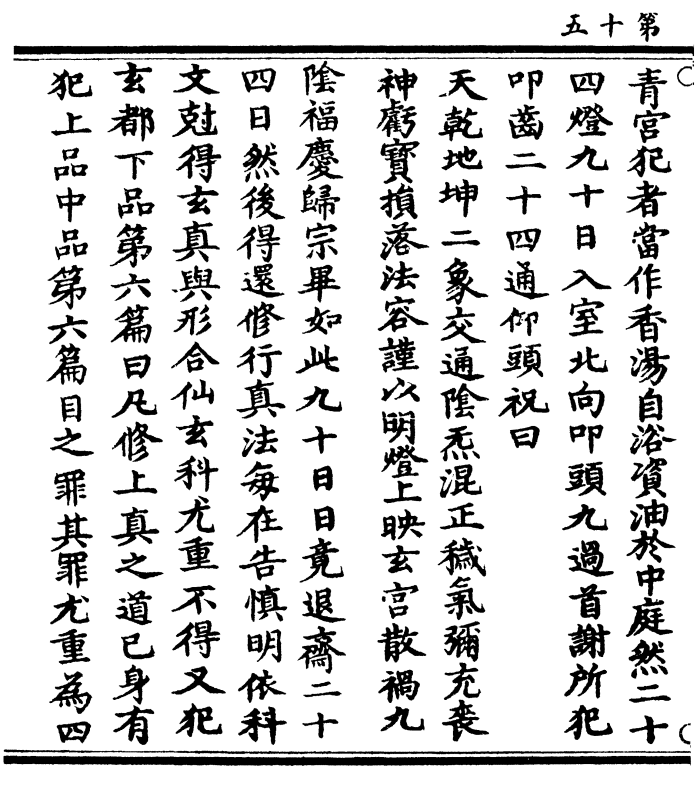 第十五
青宮犯者當作香湯自浴賫油於中庭然二十
四燈九十日入室北向叩頭九過首謝所犯
叩齒二十四通仰頭祝曰
天乾地坤二象交通陰炁混正穢氣彌充喪
神虧寶損落法容謹以明燈上映玄宮散禍九
陰福慶歸宗畢如此九十日日竟退齋二十
四日然後得還修行真法每在告慎明依科
文尅得玄真與形合仙玄科尤重不得又犯
玄都下品第六篇曰凡修上真之道已身有
犯上品中品第六篇目之罪其罪尤重為四